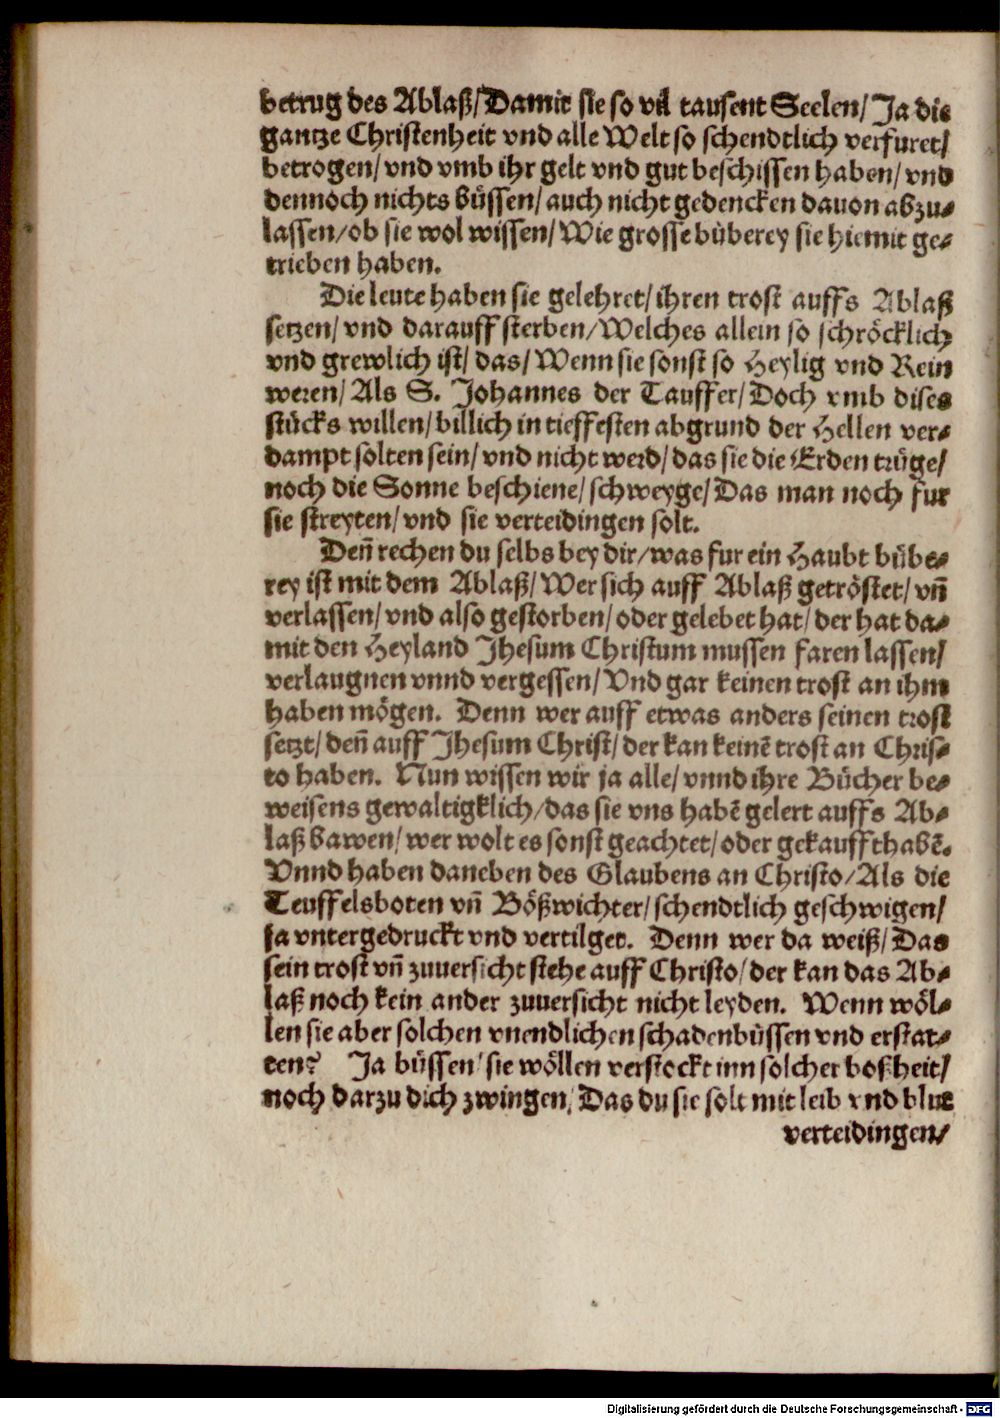 betrug des Ablaß/Damit sie so vil tausent Seelen/ Ja die
gantze Christenheit vnd alle Welt so schendtlich verfuret/
betrogen/ vnd vmb ihr gelt vnd gut beschissen haben/ vnd
dennoch nichts büssen/ auch nicht gedencken dauon abzu-
lassen/ob sie wol wissen/ Wie grosse büberey sie hiemit ge-
trieben haben.
Die leute haben sie gelehret/ ihren trost auffs Ablaß
setzen/ vnd darauff sterben/Welches allein so schröcklich
vnd grewlich ist/ das/ Wenn sie sonst so Heylig vnd Rein
weren/ Als S. Johannes der Tauffer/ Doch vmb dises
stücks willen/ billich in tieffesten abgrund der Hellen ver-
dampt solten sein/ vnd nicht werd/ das sie die Erden trüge/
noch die Sonne beschiene/ schweyge/ Das man noch fur
sie streyten/ vnd sie verteidingen solt.
Deñ rechen du selbs bey dir/was fur ein Haubt bübe-
rey ist mit dem Ablaß/ Wer sich auff Ablaß getröstet/ vñ
verlassen/ vnd also gestorben/ oder gelebet hat/ der hat da-
mit den Heyland Jhesum Christum mussen faren lassen/
verlaugnen vnnd vergessen/ Vnd gar keinen trost an ihm
haben mögen. Denn wer auff etwas anders seinen trost
setzt/ deñ auff Jhesum Christ/ der kan keinē trost an Chris-
to haben. Nun wissen wir ja alle/ vnnd ihre Bücher be-
weisens gewaltigklich/das sie vns habē gelert auffs Ab-
laß bawen/ wer wolt es sonst geachtet/ oder gekauffthabē.
Vnnd haben daneben des Glaubens an Christo/Als die
Teuffelsboten vñ Bößwichter/ schendtlich geschwigen/
ja vntergedruckt vnd vertilget. Denn wer da weiß/ Das
sein trost vñ zuuersicht stehe auff Christo/ der kan das Ab-
laß noch kein ander zuuersicht nicht leyden. Wenn wöl-
len sie aber solchen vnendlichen schadenbüssen vnd erstat-
ten? Ja büssen/ sie wöllen verstockt inn solcher boßheit/
noch darzu dich zwingen/ Das du sie solt mit leib vnd blut
verteidingen/
Digitalisierung gefördert durch die Deutsche Forschungsgemeinschaft - DFG